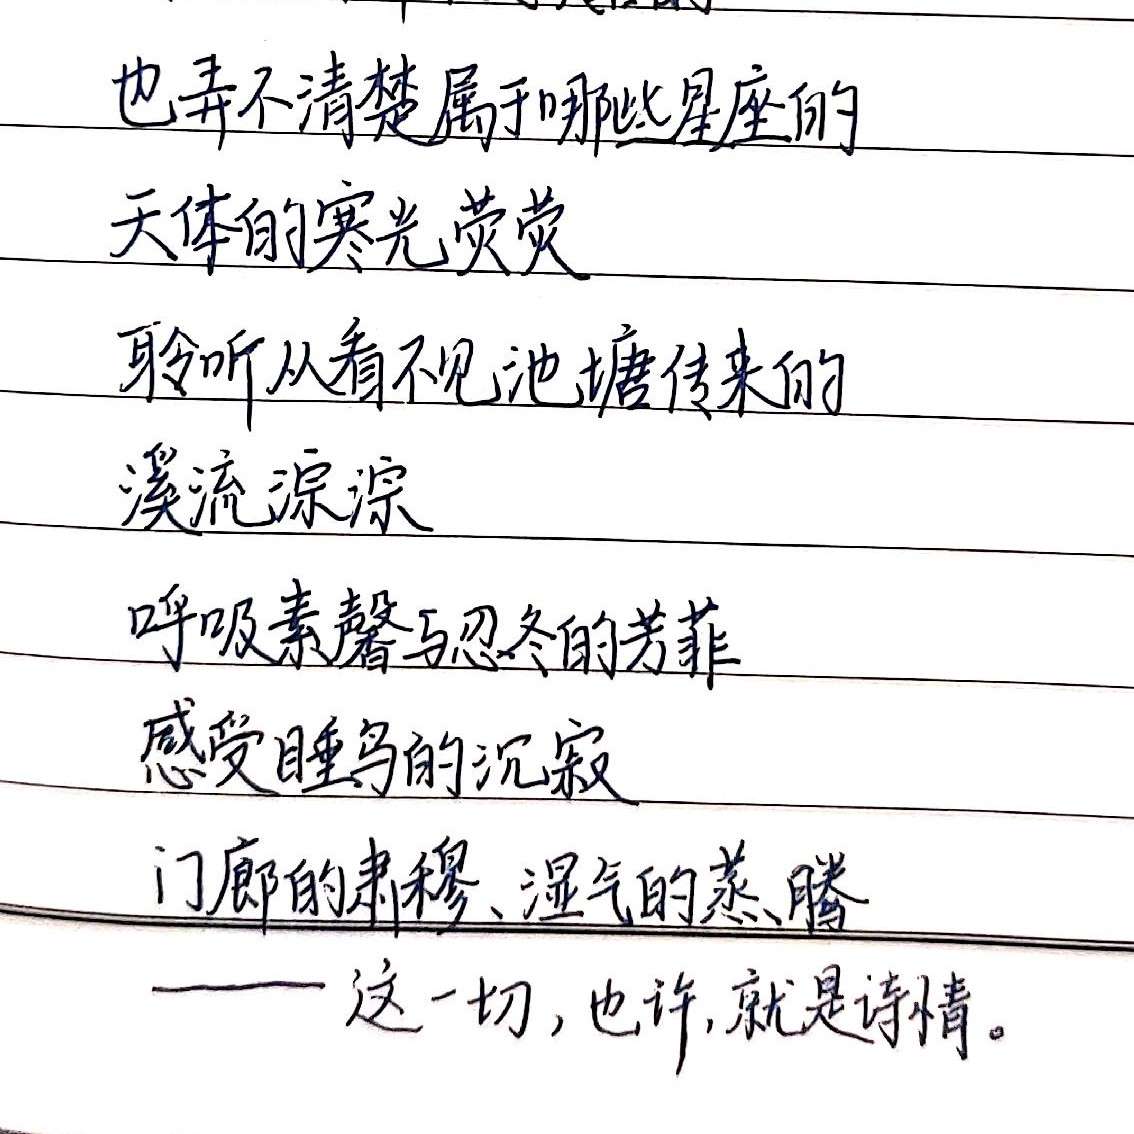 也弄不清楚属于哪些星座的
天体的寒光荧荧
聆听从看不见池塘传来的
溪流淙淙
呼吸素馨与忍冬的芳菲
感受睡鸟的沉寂
门廊的肃穆、湿气的蒸腾
——这一切，也许，就是诗情。